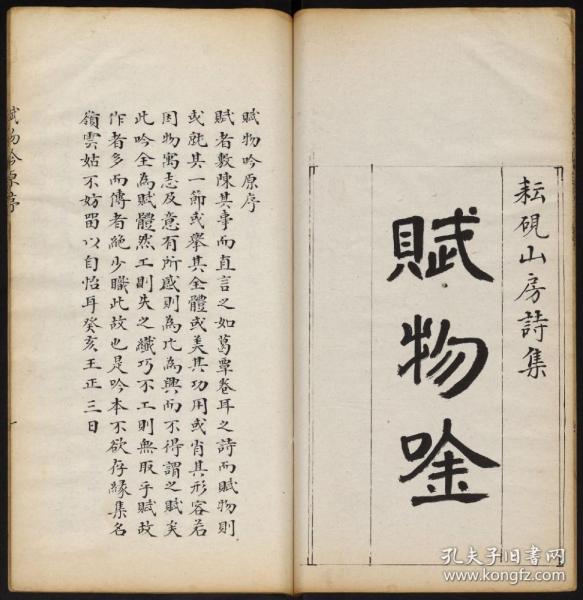 耘硯山房詩集
賦物唫
賦物吟原序
賦者敷陳其事而直言之如葛覃卷耳之詩而賦物則
或就其一節或舉其全體或美其功用或肖其形容若
因物寓志及意有所感則為比為興而不得謂之賦矣
此吟全為賦體然工則失之纖巧不工則無取乎賦故
作者多而傳者絶少職此故也是吟本不欲存緣集名
嶺雲姑不妨畱以自怡耳癸亥王正三日
賦物吟原序
一
孔夫子旧书网
www.kongfz.com